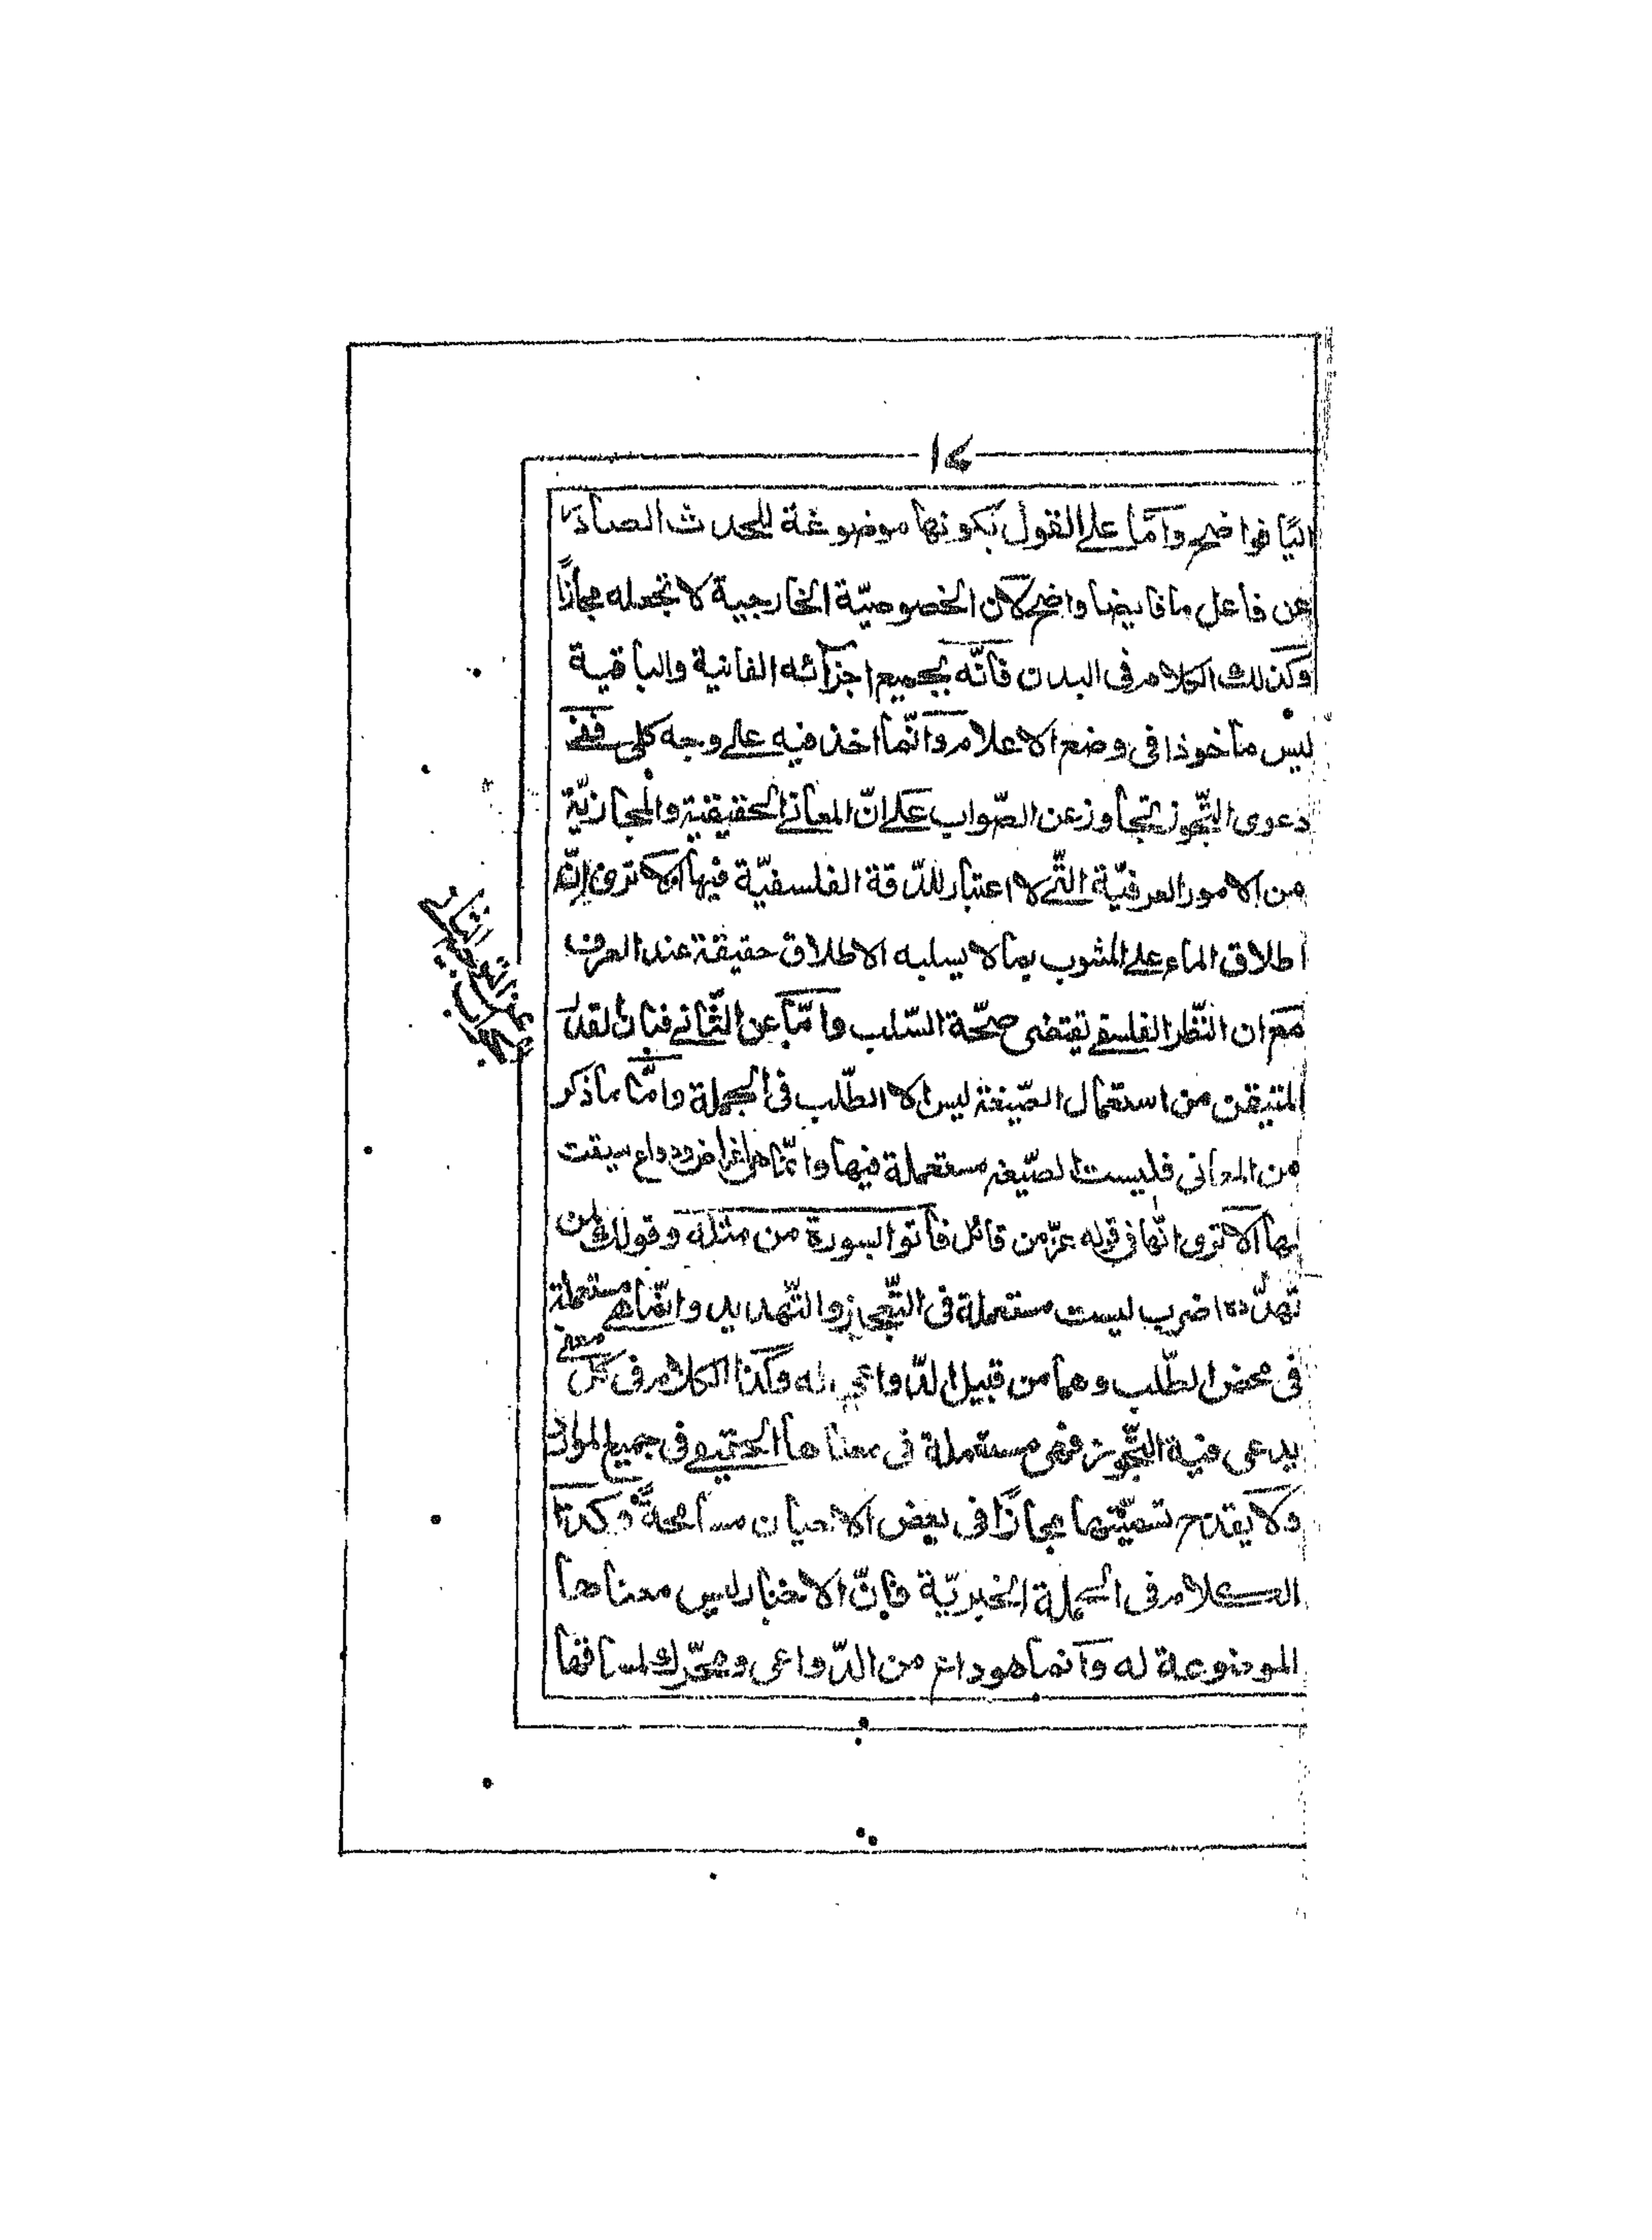 ١٤
اليّا فواضح وامّا على القول بكونها موضوعة للحدث الصادر
عن فاعل ما فايضا واضح لان الخصوصيّة الخارجية لا تجعله مجازًا
وكذلك الكلام في البدن فانّه بجميع اجزائه الفانية والباقية
ليس ماخوذا في وضع الاعلام وانّما اخذ فيه على وجه كلى ففى
دعوى التّجوز تجاوز عن الصّواب على انّ المعانى الحقيقية والمجازيّة
من الامور العرفيّة الّتى لا اعتبار للدّقة الفلسفيّة فيها الا ترى انّ
اطلاق الماء على المشوب بما لا يسلبه الاطلاق حقيقة عند العرف
مع ان النّظر الفلسفى يقتضى صحّة السّلب وامّا عن الثّانى فبان القدر
المتيقن من استعمال الصّيغة ليس الا الطّلب في الجملة وامّا ما ذكر
من المعانى فليست الصّيغه مستعملة فيها وانّما هى اغراض ودواع سيقت
بها الا ترى انّها في قوله عزّ من قائل فأتوا بسورة من مثله وقولك لمن
تهدّده اضرب ليست مستعملة في التّعجيز والتّهديد وانّما هى مستعملة
في محض الطّلب وهما من قبيل الدّواعى له وكذا الكلام في كل معنى
يدعى فيه التّجوز فهى مستعملة في معناها الحقيقى في جميع الموارد
ولا يقدح تسميّتها مجازًا في بعض الاحيان مسامحةً وكذا
الكلام في الجملة الخبريّة فانّ الاخبار ليس معناها
الموضوعة له وانما هو داع من الدّواعى ومحرّك لسائقها